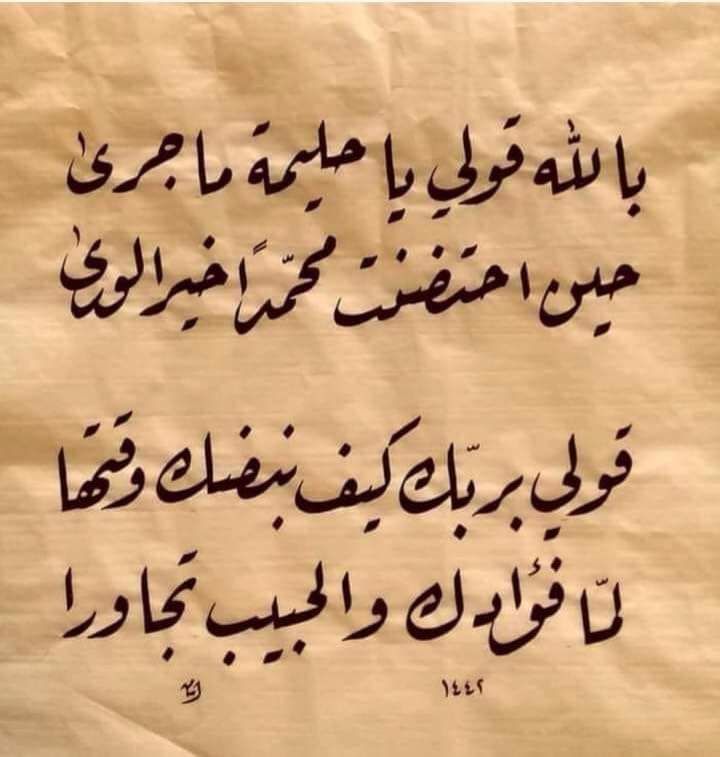 بالله قولي يا حليمة ما جرى
حين احتضنت محمّدًا خير الورى
قولي بربّك كيف نبضك وقتها
لمّا فؤادك والحبيب تجاورا
١٤٤٢